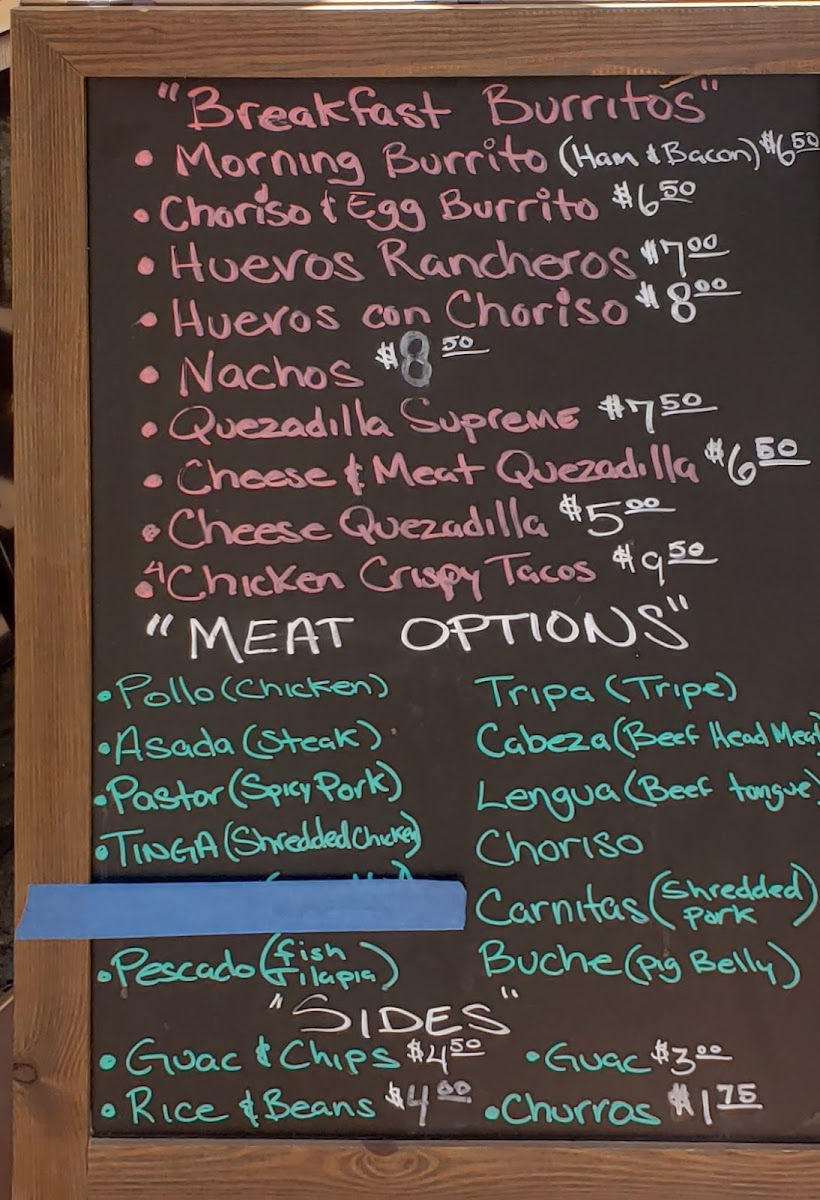 "Breakfast Burritos"
• Morning Burrito (Ham & Bacon) $6.50
• Choriso & Egg Burrito $6.50
• Huevos Rancheros $7.00
• Huevos con Choriso $8.00
• Nachos $8.50
• Quezadilla Supreme $7.50
• Cheese & Meat Quezadilla $6.50
• Cheese Quezadilla $5.00
• 4 Chicken Crispy Tacos $9.50
"MEAT OPTIONS"
• Pollo (Chicken) Tripa (Tripe)
• Asada (Steak) Cabeza (Beef Head Meat
• Pastor (Spicy Pork) Lengua (Beef tongue)
• TINGA (Shredded Chicken) Choriso
Carnitas (Shredded Pork)
• Pescado (fish Tilapia) Buche (Pig Belly)
"SIDES"
• Guac & Chips $4.50 • Guac $3.00
• Rice & Beans $4.00 • Churros $1.75